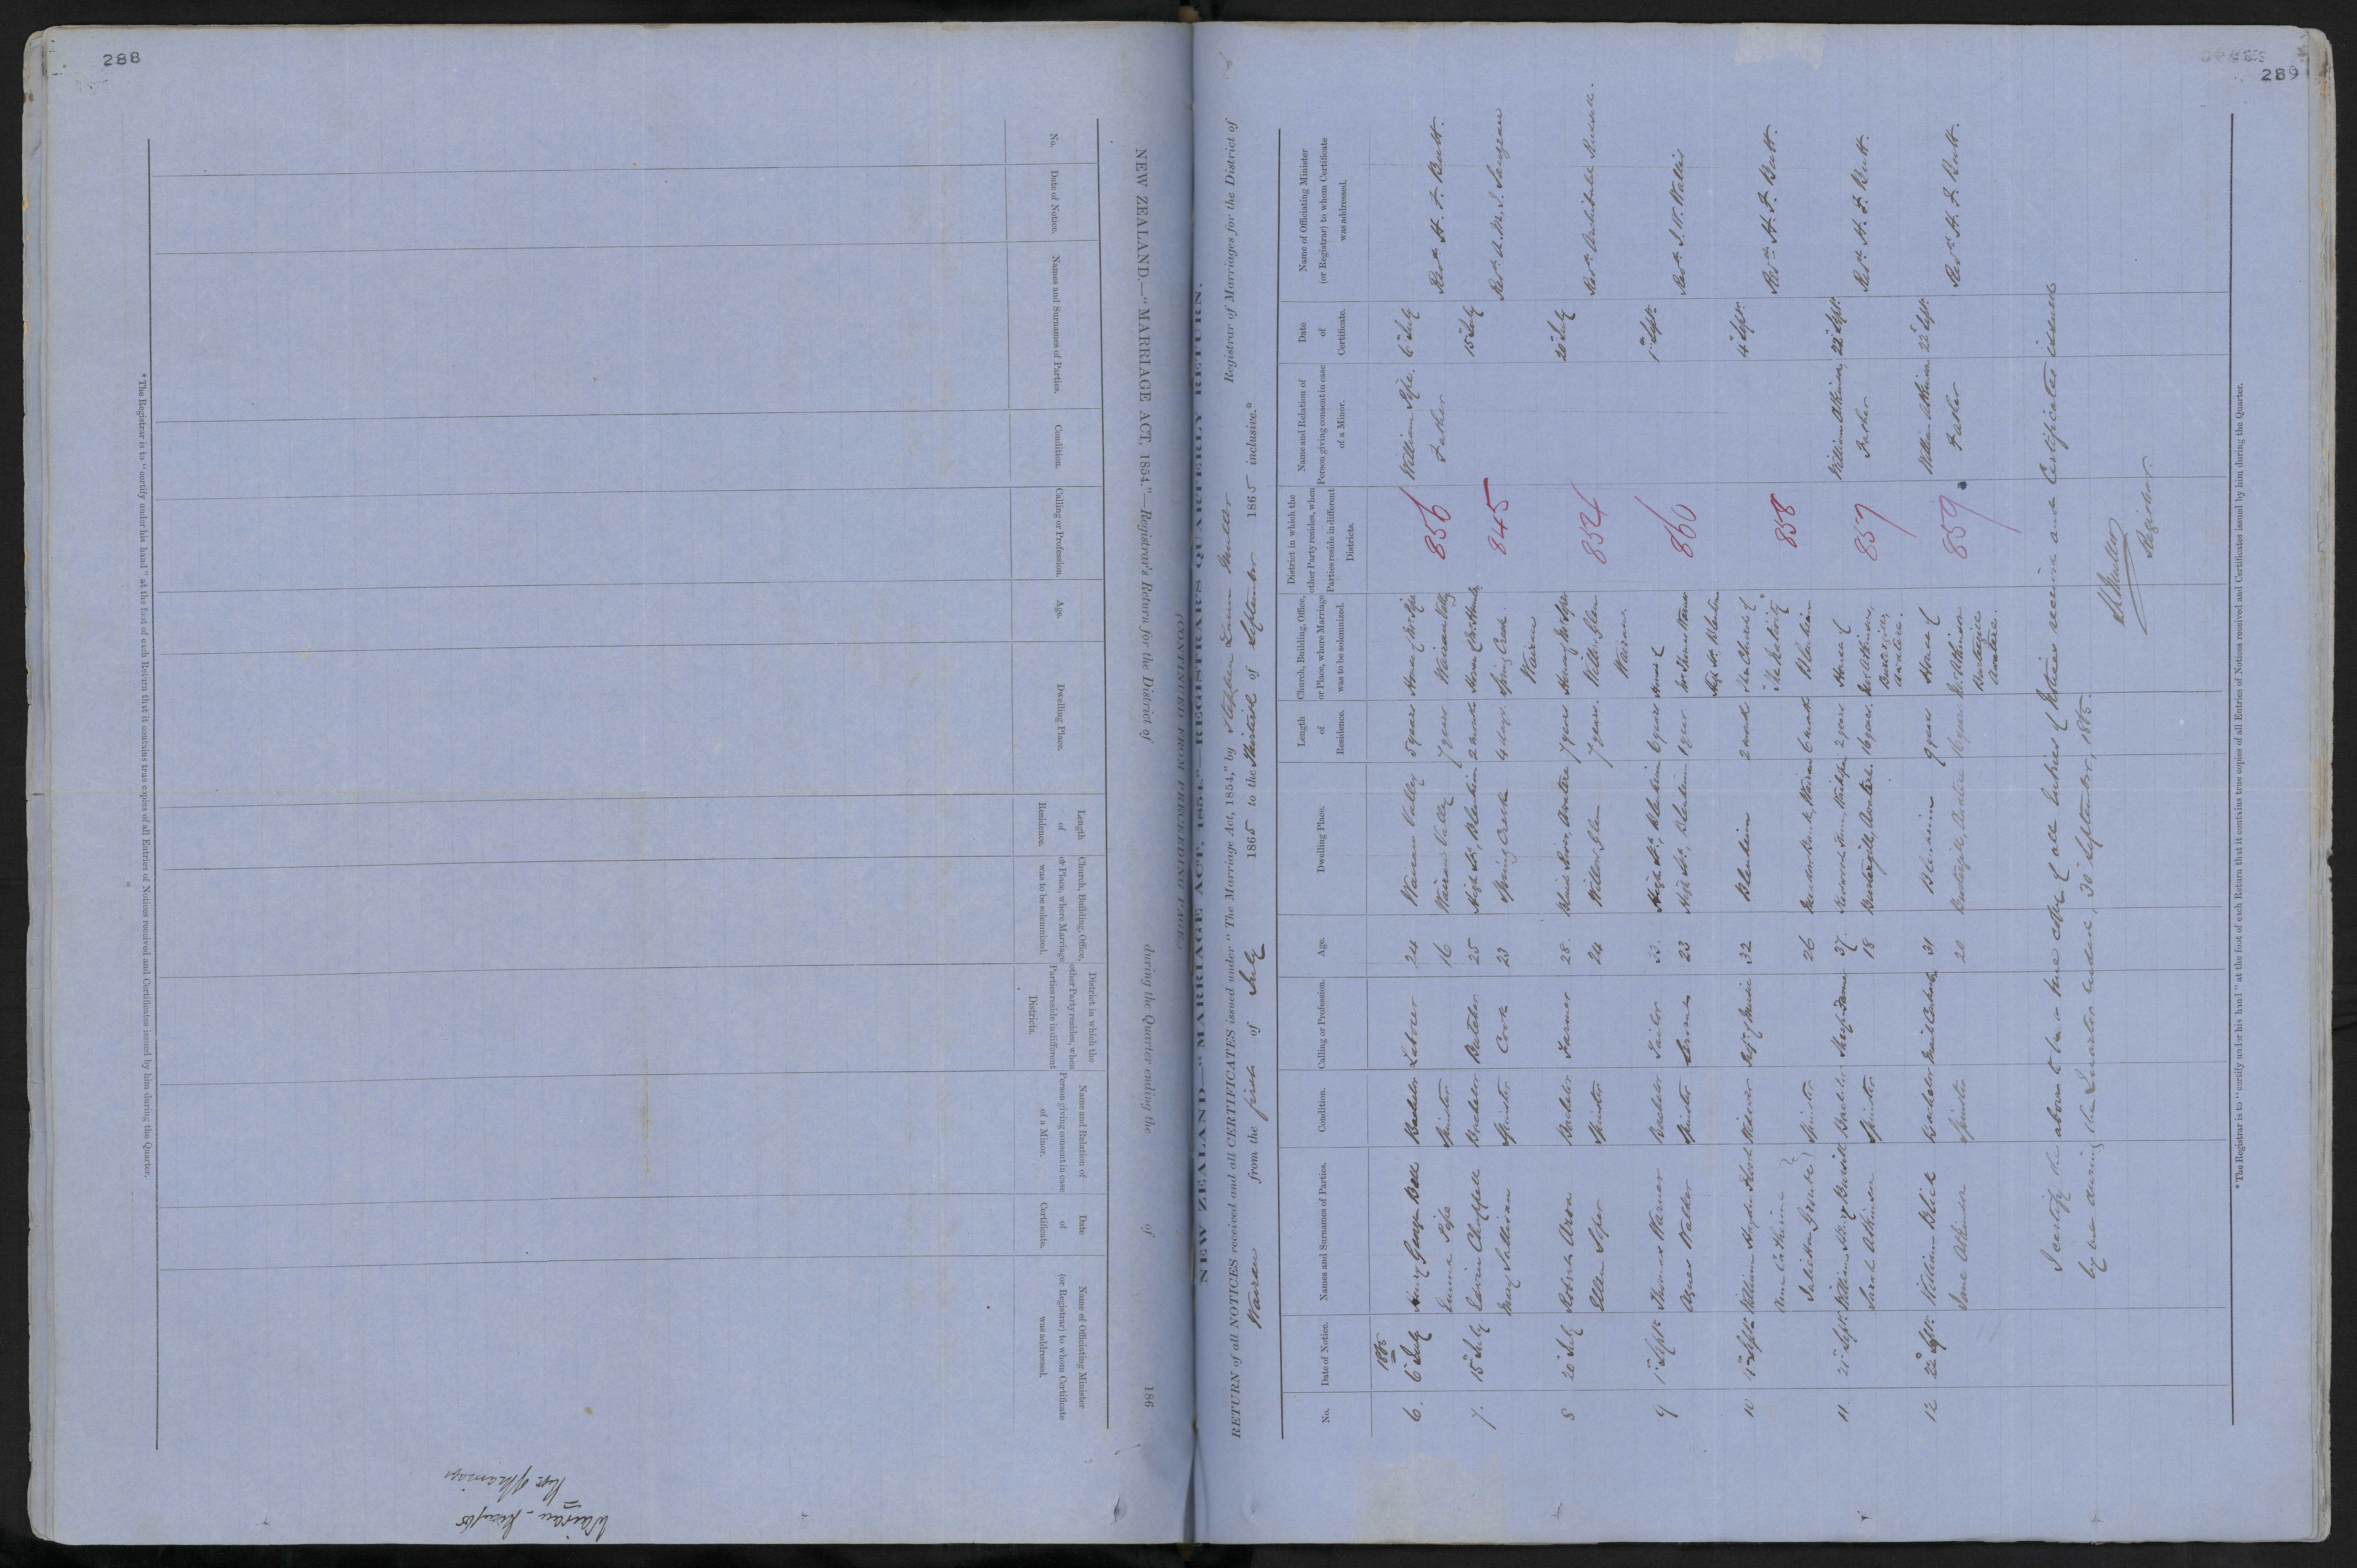 288
NEW ZEALAND.—"MARRIAGE ACT, 1854."—Registrar's Return for the District of during the Quarter ending the of 186
No. Date of Notice. Names and Surnames of Parties. Condition. Calling or Profession. Age. Dwelling Place. Length of Residence. Church, Building, Office, or Place, where Marriage was to be solemnized. District in which the other Party resides, when Parties reside in different Districts. Name and Relation of Person giving consent in case of a Minor. Date of Certificate. Name of Officiating Minister (or Registrar) to whom Certificate was addressed.
* The Registrar is to "certify under his hand" at the foot of each Return that it contains true copies of all Entries of Notices received and Certificates issued by him during the Quarter.
289
(CONTINUED FROM PRECEDING PAGE.)
NEW ZEALAND.—"MARRIAGE ACT, 1854."—REGISTRAR'S QUARTERLY RETURN.
RETURN of all NOTICES received and all CERTIFICATES issued under "The Marriage Act, 1854," by Stephen Lunn Muller Registrar of Marriages for the District of
Wairau from the first of July 1865 to the Thirtieth of September 1865 inclusive.*
No. Date of Notice. Names and Surnames of Parties. Condition. Calling or Profession. Age. Dwelling Place. Length of Residence. Church, Building, Office, or Place, where Marriage was to be solemnized. District in which the other Party resides, when Parties reside in different Districts. Name and Relation of Person giving consent in case of a Minor. Date of Certificate. Name of Officiating Minister (or Registrar) to whom Certificate was addressed.
1865
6. 6 July Henry George Bell Bachelor Labourer 24 Wairau Valley 5 years House of Mr Pope 856 William Pope. 6 July
Emma Pope Spinster 16 Wairau Valley 7 years Wairau Valley Father Revd. H. F. Butt.
7. 15 July Edwin Chappell Bachelor Butcher 25 High St, Blenheim 2 months House of 845 15 July
Mary Sullivan Spinster Cook 23 Spring Creek 4 days. Spring Creek Wairau Revd. A. M. J.
8 20 July Robert Bachelor Farmer 28 Blind River, Awatere 7 years House of Mr Soper 854 20 July
Ellen Soper Spinster 24 Wither Glen 7 years. Wither Glen Wairau Revd. Archibald
9 1 Septr. Thomas Warner Bachelor Tailor 32. High St, Blenheim 6 years House of 860 1 Septr.
Agnes Waller Spinster 23 High St, Blenheim 1 year Mr Thomas Warner High St Blenheim Revd. J. W. Wallis
10 4 Septr. William Hayden Widower Profr. of Music 32 Blenheim 2 months The Church of 858 4 Septr.
Ann Catherine Juliet Spinster 26 Wairau 6 months The Nativity Blenheim Revd. H. F. Butt.
11. 21 Septr. William Henry Bachelor Sheep Farmer 37. 2 years House of 859 William Atkinson, 22 Septr.
Sarah Atkinson Spinster 18 Awatere. 16 years. Mr Atkinson, Awatere. Father Revd. H. F. Butt.
12 22 Septr. William Bachelor Mail Contractor 31 Blenheim 9 years House of 859 William Atkinson 22 Septr.
Jane Atkinson Spinster 20 Awatere 16 years Mr Atkinson Awatere. Father Revd. H. F. Butt.
I certify the above to be a true copy of all Entries of Notices received and Certificates issued
by me during the Quarter ended, 30 September, 1865.
S L Muller
Registrar
* The Registrar is to "certify under his hand" at the foot of each Return that it contains true copies of all Entries of Notices received and Certificates issued by him during the Quarter.